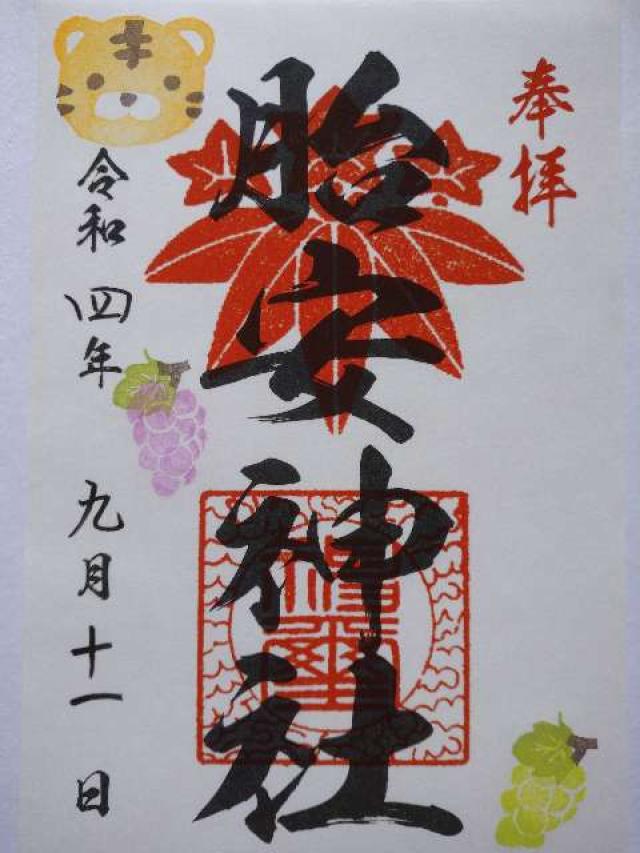 奉拝
胎安神社
令和四年九月十一日